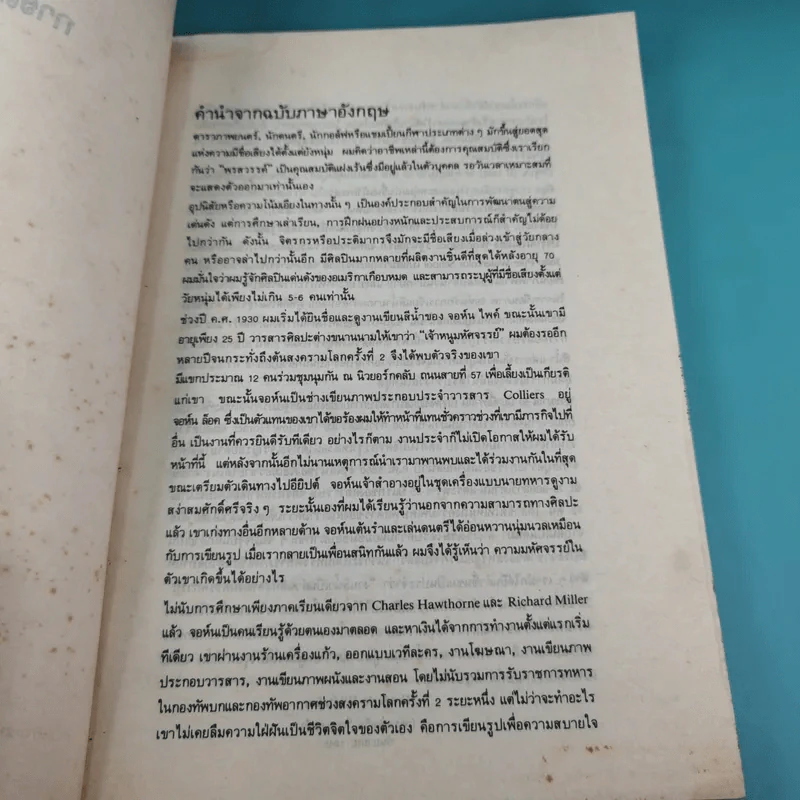 คำนำจากฉบับภาษาอังกฤษ
ดาราภาพยนตร์, นักดนตรี, นักกอล์ฟหรือแชมเปี้ยนกีฬาประเภทต่าง ๆ มักขึ้นสู่ยอดสุด
แห่งความมีชื่อเสียงได้ตั้งแต่ยังหนุ่ม ผมคิดว่าอาชีพเหล่านี้ต้องการคุณสมบัติซึ่งเราเรียก
กันว่า "พรสวรรค์" เป็นคุณสมบัติแฝงเร้นซึ่งมีอยู่แล้วในตัวบุคคล รอวันเวลาเหมาะสมที่
จะแสดงตัวออกมาเท่านั้นเอง
อุปนิสัยหรือความโน้มเอียงในทางนั้น ๆ เป็นองค์ประกอบสำคัญในการพัฒนาตนสู่ความ
เด่นดัง แต่การศึกษาเล่าเรียน, การฝึกฝนอย่างหนักและประสบการณ์ก็สำคัญไม่ด้อย
ไปกว่ากัน ดังนั้น จิตรกรหรือประติมากรจึงมักจะมีชื่อเสียงเมื่อล่วงเข้าสู่วัยกลาง
คน หรืออาจล่าไปกว่านั้นอีก มีศิลปินมากหลายที่ผลิตงานชิ้นดีที่สุดได้หลังอายุ 70
ผมมั่นใจว่าผมรู้จักศิลปินเด่นดังของอเมริกาเกือบหมด และสามารถระบุผู้ที่มีชื่อเสียงตั้งแต่
วัยหนุ่มได้เพียงไม่เกิน 5-6 คนเท่านั้น
ช่วงปี ค.ศ. 1930 ผมเริ่มได้ยินชื่อและดูงานเขียนสีน้ำของ จอห์น ไพค์ ขณะนั้นเขามี
อายุเพียง 25 ปี วารสารศิลปะต่างขนานนามให้เขาว่า "เจ้าหนูมหัศจรรย์" ผมต้องรออีก
หลายปีจนกระทั่งถึงต้นสงครามโลกครั้งที่ 2 จึงได้พบตัวจริงของเขา
มีแขกประมาณ 12 คนร่วมชุมนุมกัน ณ นิวยอร์กคลับ ถนนสายที่ 57 เพื่อเลี้ยงเป็นเกียรติ
แก่เขา ขณะนั้นจอห์นเป็นช่างเขียนภาพประกอบประจำวารสาร Colliers อยู่
จอห์น ล็อค ซึ่งเป็นตัวแทนของเขาได้ขอร้องผมให้ทำหน้าที่แทนชั่วคราวช่วงที่เขามีภารกิจไปที่
อื่น เป็นงานที่ควรยินดีรับทีเดียว อย่างไรก็ตาม งานประจำก็ไม่เปิดโอกาสให้ผมได้รับ
หน้าที่นี้ แต่หลังจากนั้นอีกไม่นานเหตุการณ์นำเรามาพานพบและได้ร่วมงานกันในที่สุด
ขณะเตรียมตัวเดินทางไปอียิปต์ จอห์นเจ้าสำอางอยู่ในชุดเครื่องแบบนายทหารดูงาม
สง่าสมศักดิ์ศรีจริง ๆ ระยะนั้นเองที่ผมได้เรียนรู้ว่านอกจากความสามารถทางศิลปะ
แล้ว เขาเก่งทางอื่นอีกหลายด้าน จอห์นเต้นรำและเล่นดนตรีได้อ่อนหวานนุ่มนวลเหมือน
กับการเขียนรูป เมื่อเรากลายเป็นเพื่อนสนิทกันแล้ว ผมจึงได้รู้เห็นว่า ความมหัศจรรย์ใน
ตัวเขาเกิดขึ้นได้อย่างไร
ไม่นับการศึกษาเพียงภาคเรียนเดียวจาก Charles Hawthorne และ Richard Miller
แล้ว จอห์นเป็นคนเรียนรู้ด้วยตนเองมาตลอด และหาเงินได้จากการทำงานตั้งแต่แรกเริ่ม
ทีเดียว เขาผ่านงานร้านเครื่องแก้ว, ออกแบบเวทีละคร, งานโฆษณา, งานเขียนภาพ
ประกอบวารสาร, งานเขียนภาพผนังและงานสอน โดยไม่นับรวมการรับราชการทหาร
ในกองทัพบกและกองทัพอากาศช่วงสงครามโลกครั้งที่ 2 ระยะหนึ่ง แต่ไม่ว่าจะทำอะไร
เขาไม่เคยลืมความใฝ่ฝันเป็นชีวิตจิตใจของตัวเอง คือการเขียนรูปเพื่อความสบายใจ